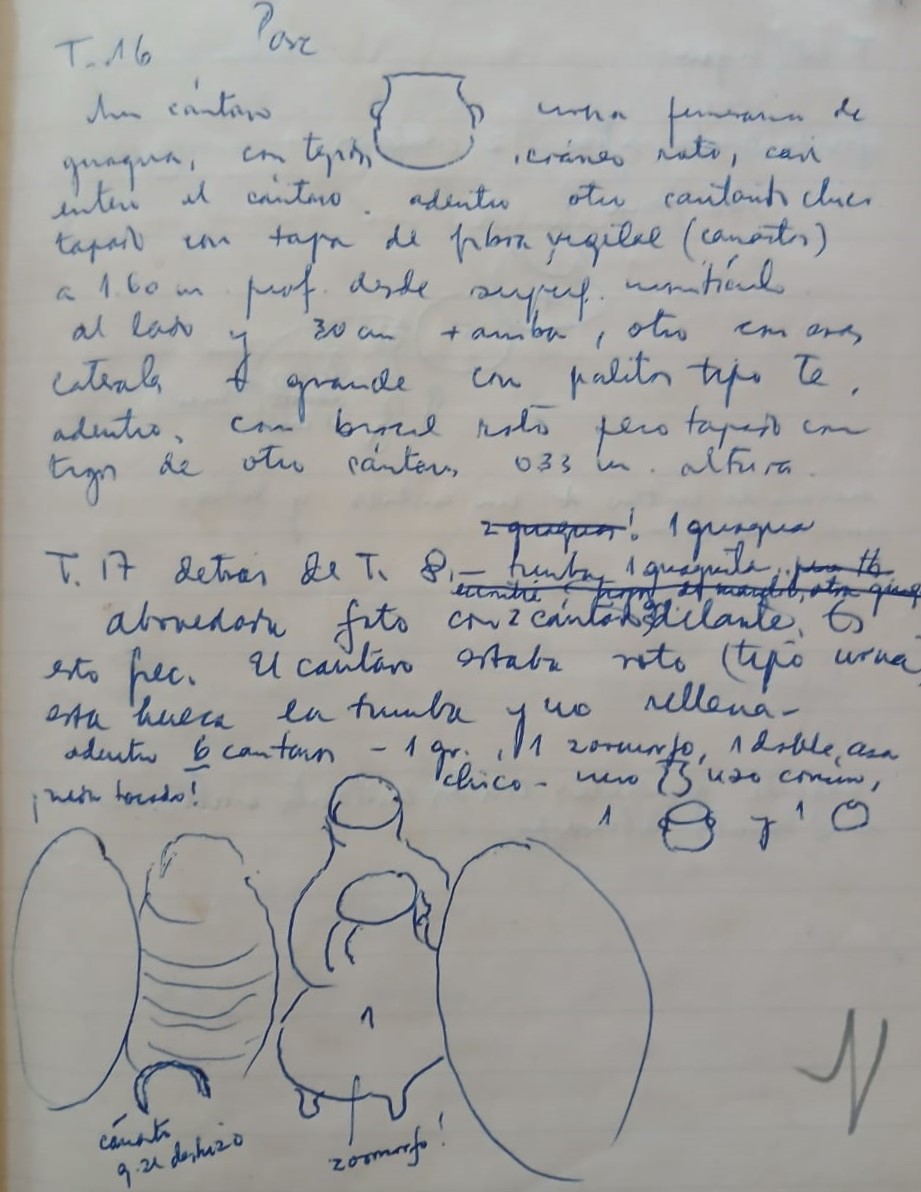 T. 16
un cántaro urna funeraria de
guagua, con tejido, cráneo roto, casi
entero el cántaro. adentro otro cantarito chico
tapado con tapa de fibra vegetal (canasto)
a 1.60 m prof. desde superf.
al lado y 30 cm + arriba, otro con asas
laterales + grande con palitos tipo Te,
adentro, con brocal roto pero tapado con
de otro cántaro, 033 m. altura.
2 guaguas! 1 guagua
T. 17 detrás de T. 8, – tumba, 1 guaguita,
abovedada foto con 2 cántaros delante, Es
esto frec. El cántaro estaba roto (tipo urna)
esta hueca la tumba y no rellena –
adentro 6 cantaros – 1 gr., 1 zoomorfo, 1 doble, asa
chico – uso común,
1 y 1
1
cántaro
q. se deshizo
zoomorfo!